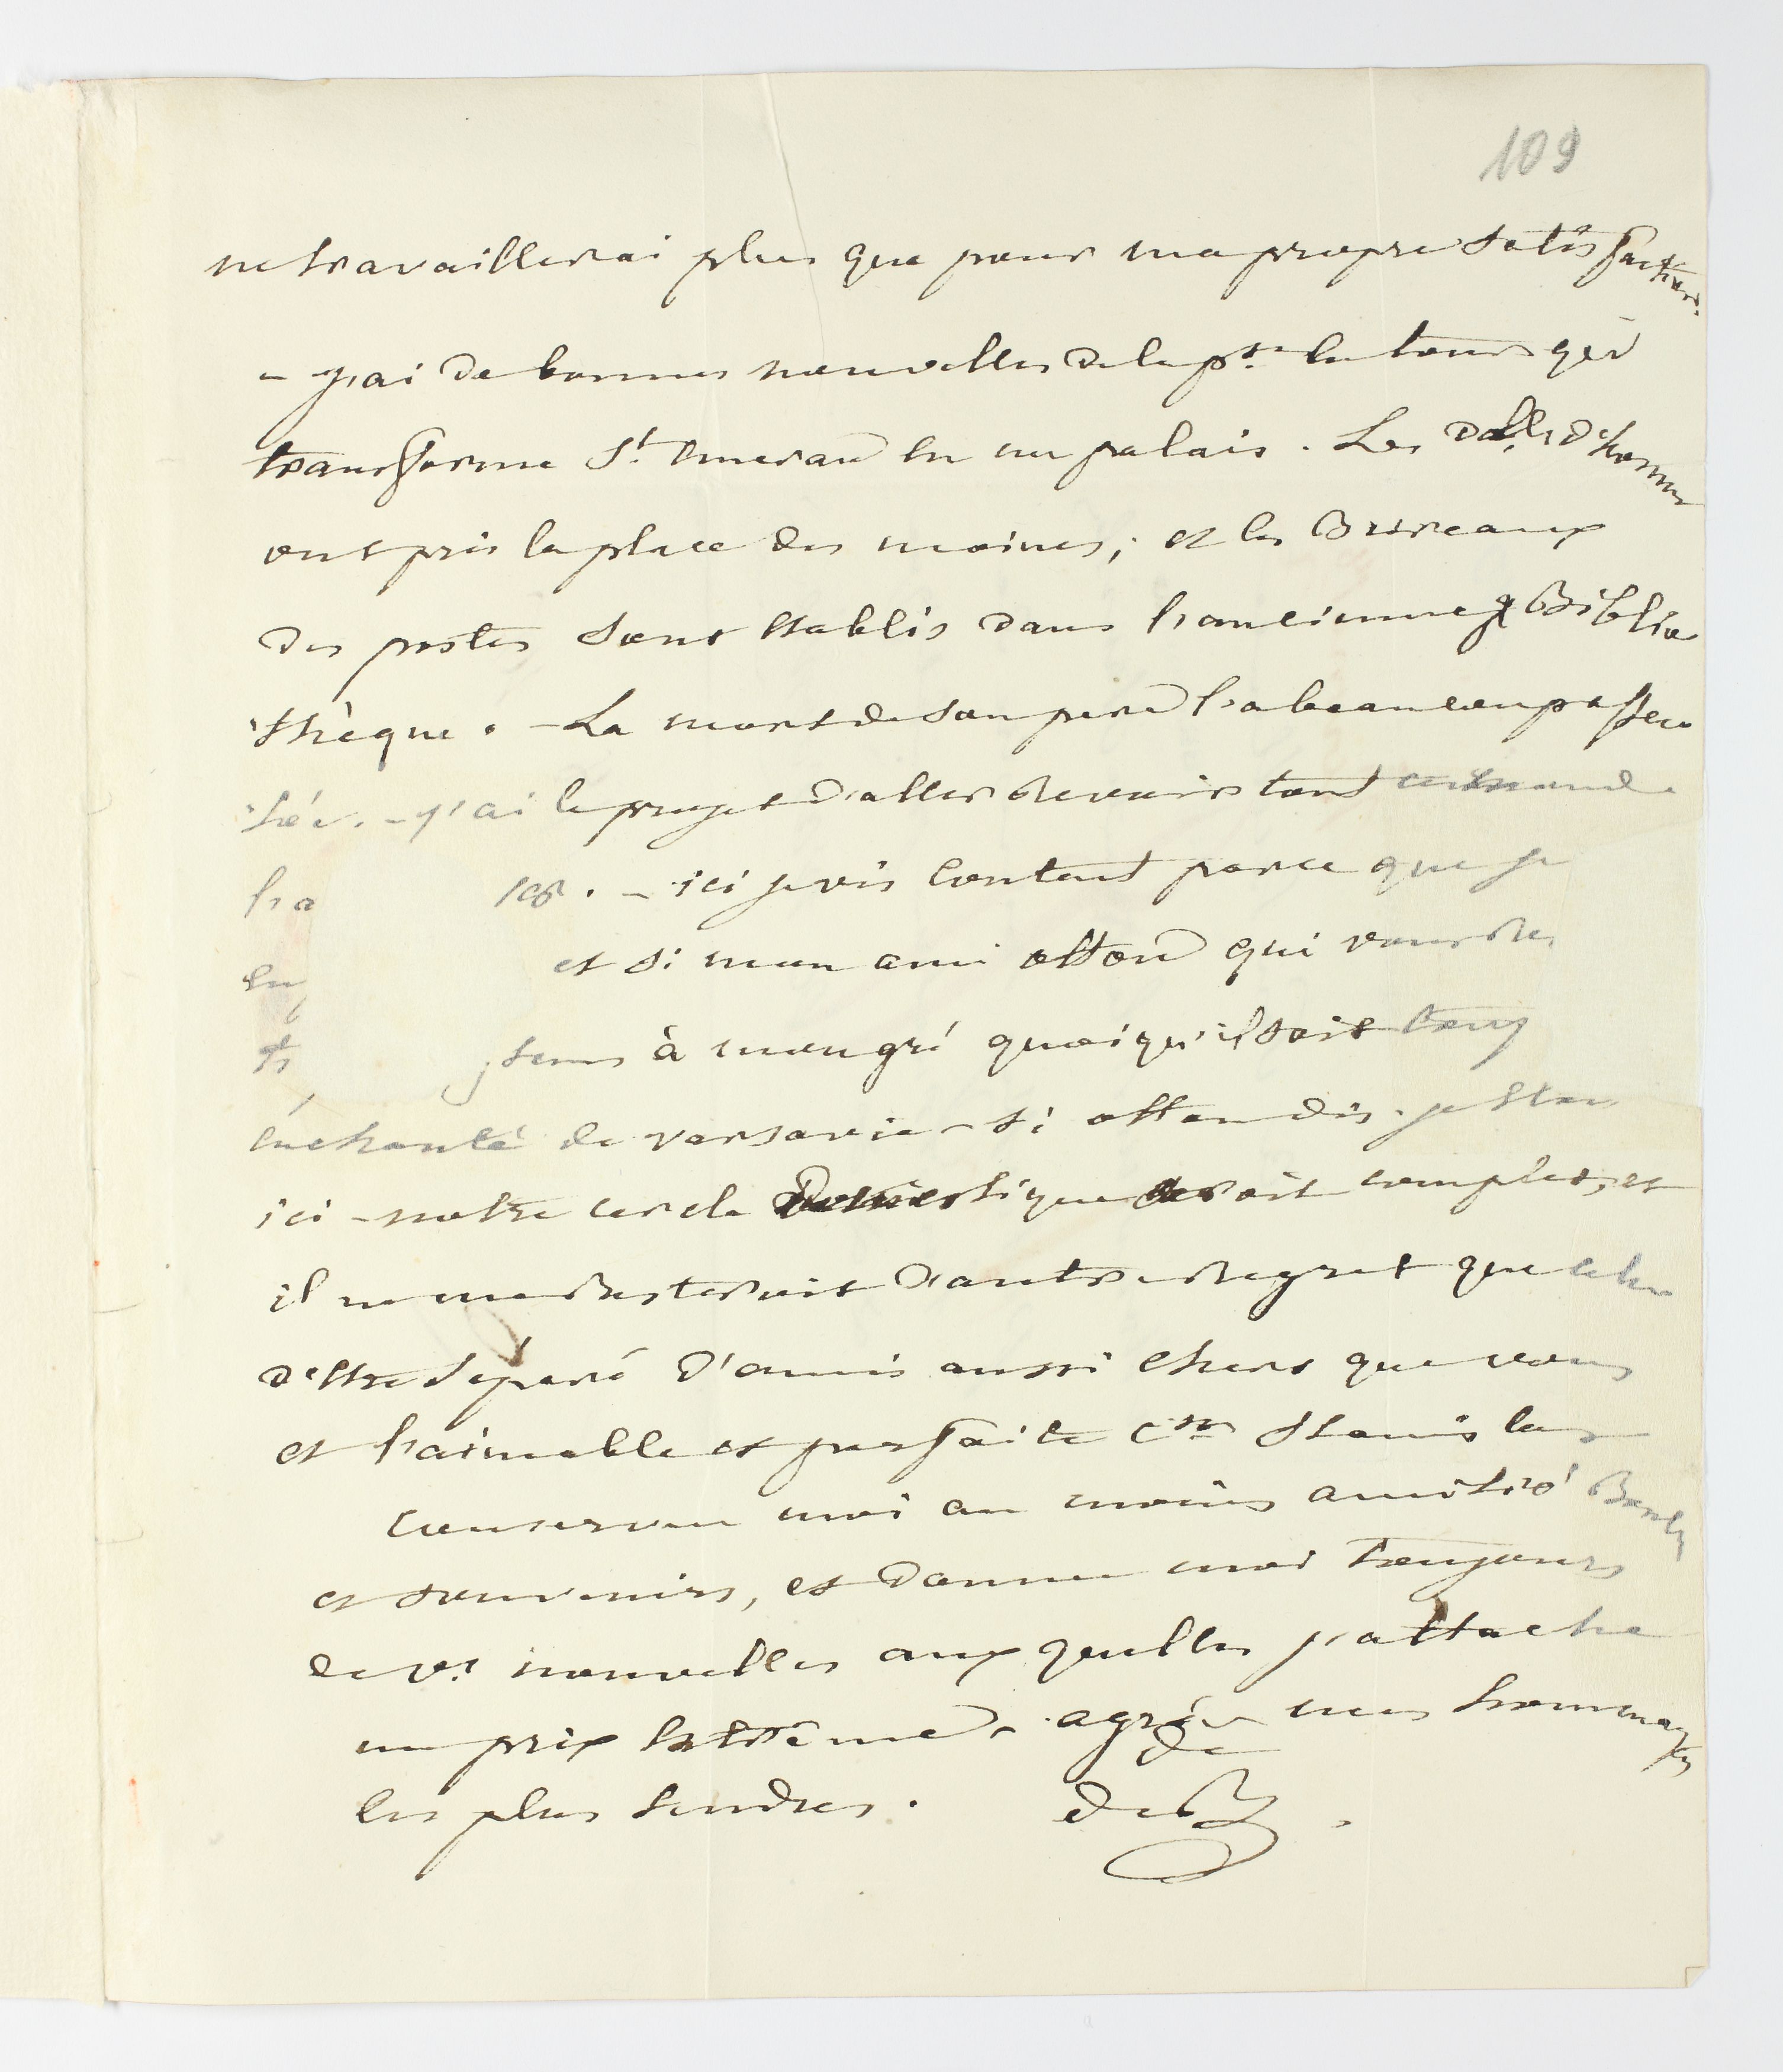 109
ne travaillerai plus que pour ma propre satisfaction.
- j'ai de bonnes nouvelles de la pse. la tour qui
transforme St. Emeran en un palais. Les dlles d'honneur
ont pris la place des moines; et les Bureaux
des postes sont etablis dans l'ancienne Biblio
thèque. - La mort de son pere l'a beaucoup affec
tée. - j'ai le projet d'aller revoir tout ce monde
la
. - ici je vis content parce que je
en et si mon ami otton qui vous
à mon gré quoiqu'il soit
enchanté de varsovie - si otton dis-je etoit
ici - notre cercle Domestique seroit complet, et
il ne me resteroit d'autre regret que celui
d'etre separé d'amis aussi chers que vous
et l'aimable et parfaite csse Stanislas
conservez moi au moins amitié Bonté
et souvenirs, et donnez moi toujours
de vs. nouvelles aux quelles j'attache
un prix extrême. agréez mes hommages
les plus tendres. de B.